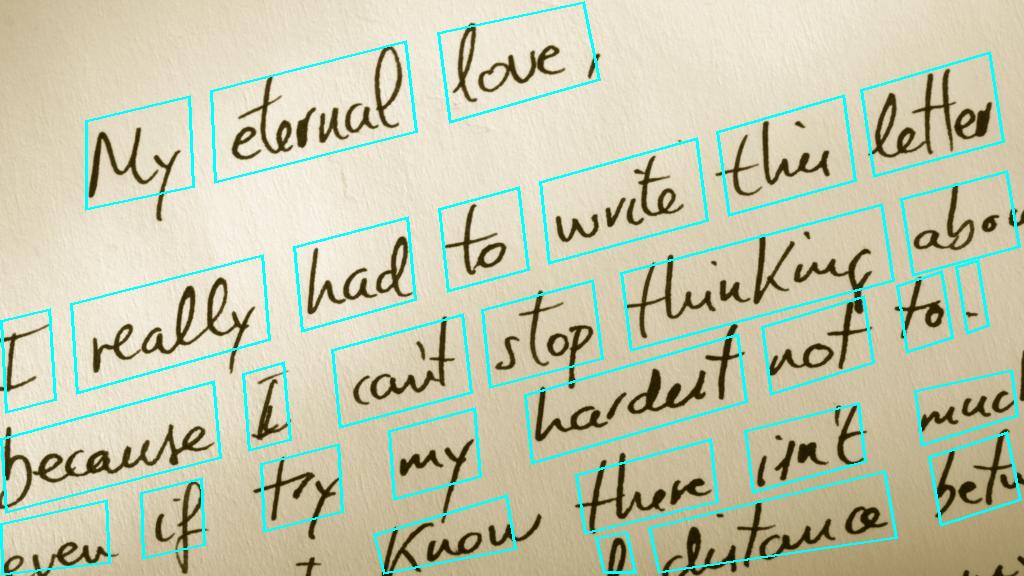 My eternal love,
I really had to write this letter
because I can't stop thinking
even if try my hardest not to.
know there isn't much
distance